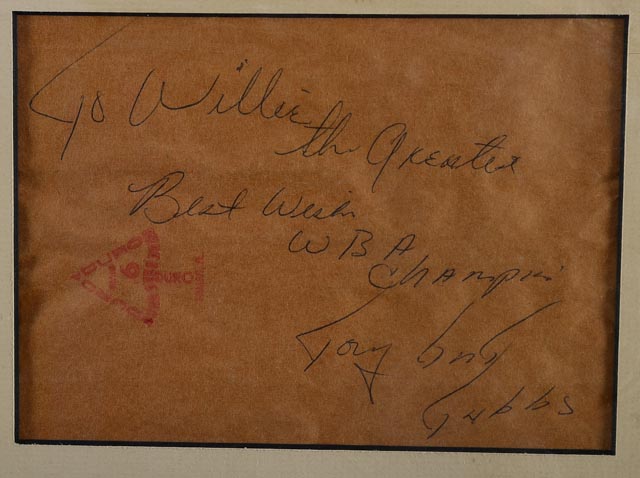 To Willie
the Greatest
Best Wish
WBA
Champion
Tony
Tubbs